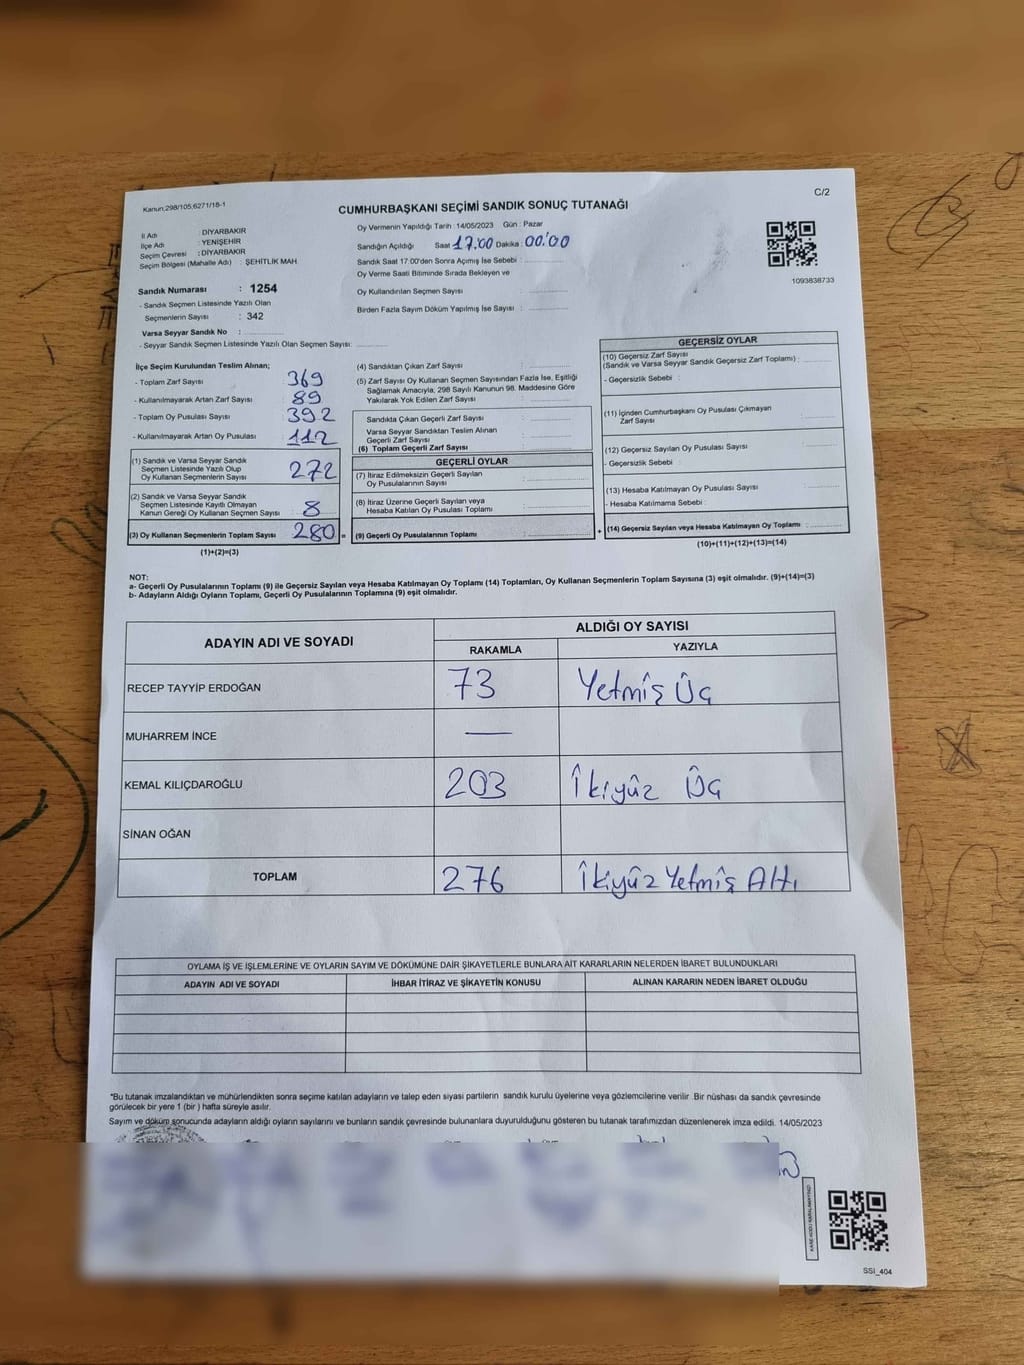 Kanun,298/105,6271/18-1
C/2
CUMHURBAŞKANI SEÇİMİ SANDIK SONUÇ TUTANAĞI
İl Adı : DİYARBAKIR
İlçe Adı : YENİŞEHİR
Seçim Çevresi : DİYARBAKIR
Seçim Bölgesi (Mahalle Adı) : ŞEHİTLİK MAH.
Sandık Numarası : 1254
- Sandık Seçmen Listesinde Yazılı Olan
Seçmenlerin Sayısı : 342
Varsa Seyyar Sandık No :
- Seyyar Sandık Seçmen Listesinde Yazılı Olan Seçmen Sayısı:
Oy Vermenin Yapıldığı Tarih : 14/05/2023 Gün : Pazar
Sandığın Açıldığı Saat 17.00 Dakika : 00:00
Sandık Saat 17:00'den Sonra Açımış İse Sebebi :
Oy Verme Saati Bitiminde Sırada Bekleyen ve
Oy Kullandırılan Seçmen Sayısı :
Birden Fazla Sayım Döküm Yapılmış İse Sayısı :
1093838733
İlçe Seçim Kurulundan Teslim Alınan;
- Toplam Zarf Sayısı 369
- Kullanılmayarak Artan Zarf Sayısı 89
- Toplam Oy Pusulası Sayısı 392
- Kullanılmayarak Artan Oy Pusulası 112
(1) Sandık ve Varsa Seyyar Sandık
Seçmen Listesinde Yazılı Olup
Oy Kullanan Seçmenlerin Sayısı 272
(2) Sandık ve Varsa Seyyar Sandık
Seçmen Listesinde Kayıtlı Olmayan
Kanun Gereği Oy Kullanan Seçmen Sayısı 8
(3) Oy Kullanan Seçmenlerin Toplam Sayısı 280 =
(1)+(2)=(3)
(4) Sandıktan Çıkan Zarf Sayısı :
(5) Zarf Sayısı Oy Kullanan Seçmen Sayısından Fazla İse, Eşitliği
Sağlamak Amacıyla; 298 Sayılı Kanunun 98. Maddesine Göre
Yakılarak Yok Edilen Zarf Sayısı :
Sandıkta Çıkan Geçerli Zarf Sayısı :
Varsa Seyyar Sandıktan Teslim Alınan
Geçerli Zarf Sayısı :
(6) Toplam Geçerli Zarf Sayısı :
GEÇERLİ OYLAR
(7) İtiraz Edilmeksizin Geçerli Sayılan
Oy Pusulalarının Sayısı :
(8) İtiraz Üzerine Geçerli Sayılan veya
Hesaba Katılan Oy Pusulası Toplamı :
(9) Geçerli Oy Pusulalarının Toplamı : +
GEÇERSİZ OYLAR
(10) Geçersiz Zarf Sayısı
(Sandık ve Varsa Seyyar Sandık Geçersiz Zarf Toplamı) :
- Geçersizlik Sebebi :
(11) İçinden Cumhurbaşkanı Oy Pusulası Çıkmayan
Zarf Sayısı :
(12) Geçersiz Sayılan Oy Pusulası Sayısı :
- Geçersizlik Sebebi :
(13) Hesaba Katılmayan Oy Pusulası Sayısı :
- Hesaba Katılmama Sebebi :
(14) Geçersiz Sayılan veya Hesaba Katılmayan Oy Toplamı :
(10)+(11)+(12)+(13)=(14)
NOT:
a- Geçerli Oy Pusulalarının Toplamı (9) ile Geçersiz Sayılan veya Hesaba Katılmayan Oy Toplamı (14) Toplamları, Oy Kullanan Seçmenlerin Toplam Sayısına (3) eşit olmalıdır. (9)+(14)=(3)
b- Adayların Aldığı Oyların Toplamı, Geçerli Oy Pusulalarının Toplamına (9) eşit olmalıdır.
ADAYIN ADI VE SOYADI ALDIĞI OY SAYISI
RAKAMLA YAZIYLA
RECEP TAYYİP ERDOĞAN 73 Yetmiş Üç
MUHARREM İNCE —
KEMAL KILIÇDAROĞLU 203 İkiyüz Üç
SİNAN OĞAN
TOPLAM 276 İkiyüz Yetmiş Altı
OYLAMA İŞ VE İŞLEMLERİNE VE OYLARIN SAYIM VE DÖKÜMÜNE DAİR ŞİKAYETLERLE BUNLARA AİT KARARLARIN NELERDEN İBARET BULUNDUKLARI
ADAYIN ADI VE SOYADI İHBAR İTİRAZ VE ŞİKAYETİN KONUSU ALINAN KARARIN NEDEN İBARET OLDUĞU
*Bu tutanak imzalandıktan ve mühürlendikten sonra seçime katılan adayların ve talep eden siyasi partilerin sandık kurulu üyelerine veya gözlemcilerine verilir .Bir nüshası da sandık çevresinde
görülecek bir yere 1 (bir ) hafta süreyle asılır.
Sayım ve döküm sonucunda adayların aldığı oyların sayılarını ve bunların sandık çevresinde bulunanlara duyurulduğunu gösteren bu tutanak tarafımızdan düzenlenerek imza edildi. 14/05/2023
SSI_404